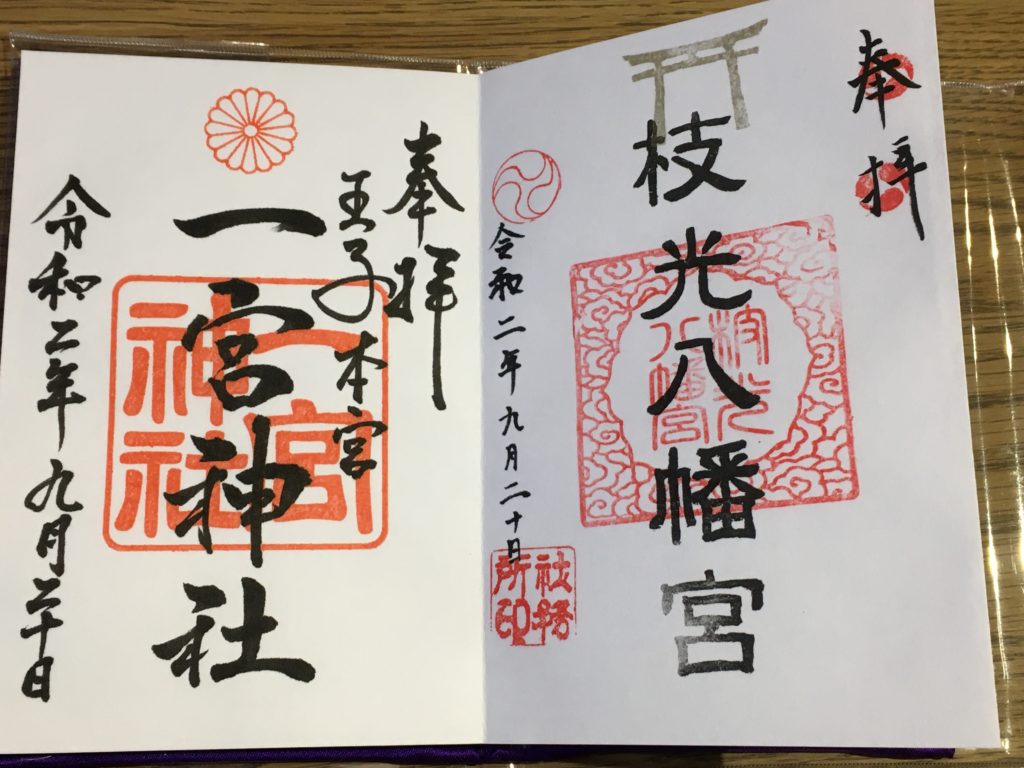 奉拝
枝光八幡宮
枝光
八幡宮
令和二年九月二十日
社務
所印
奉拝
王子本宮
一宮神社
一宮
神社
令和二年九月二十日